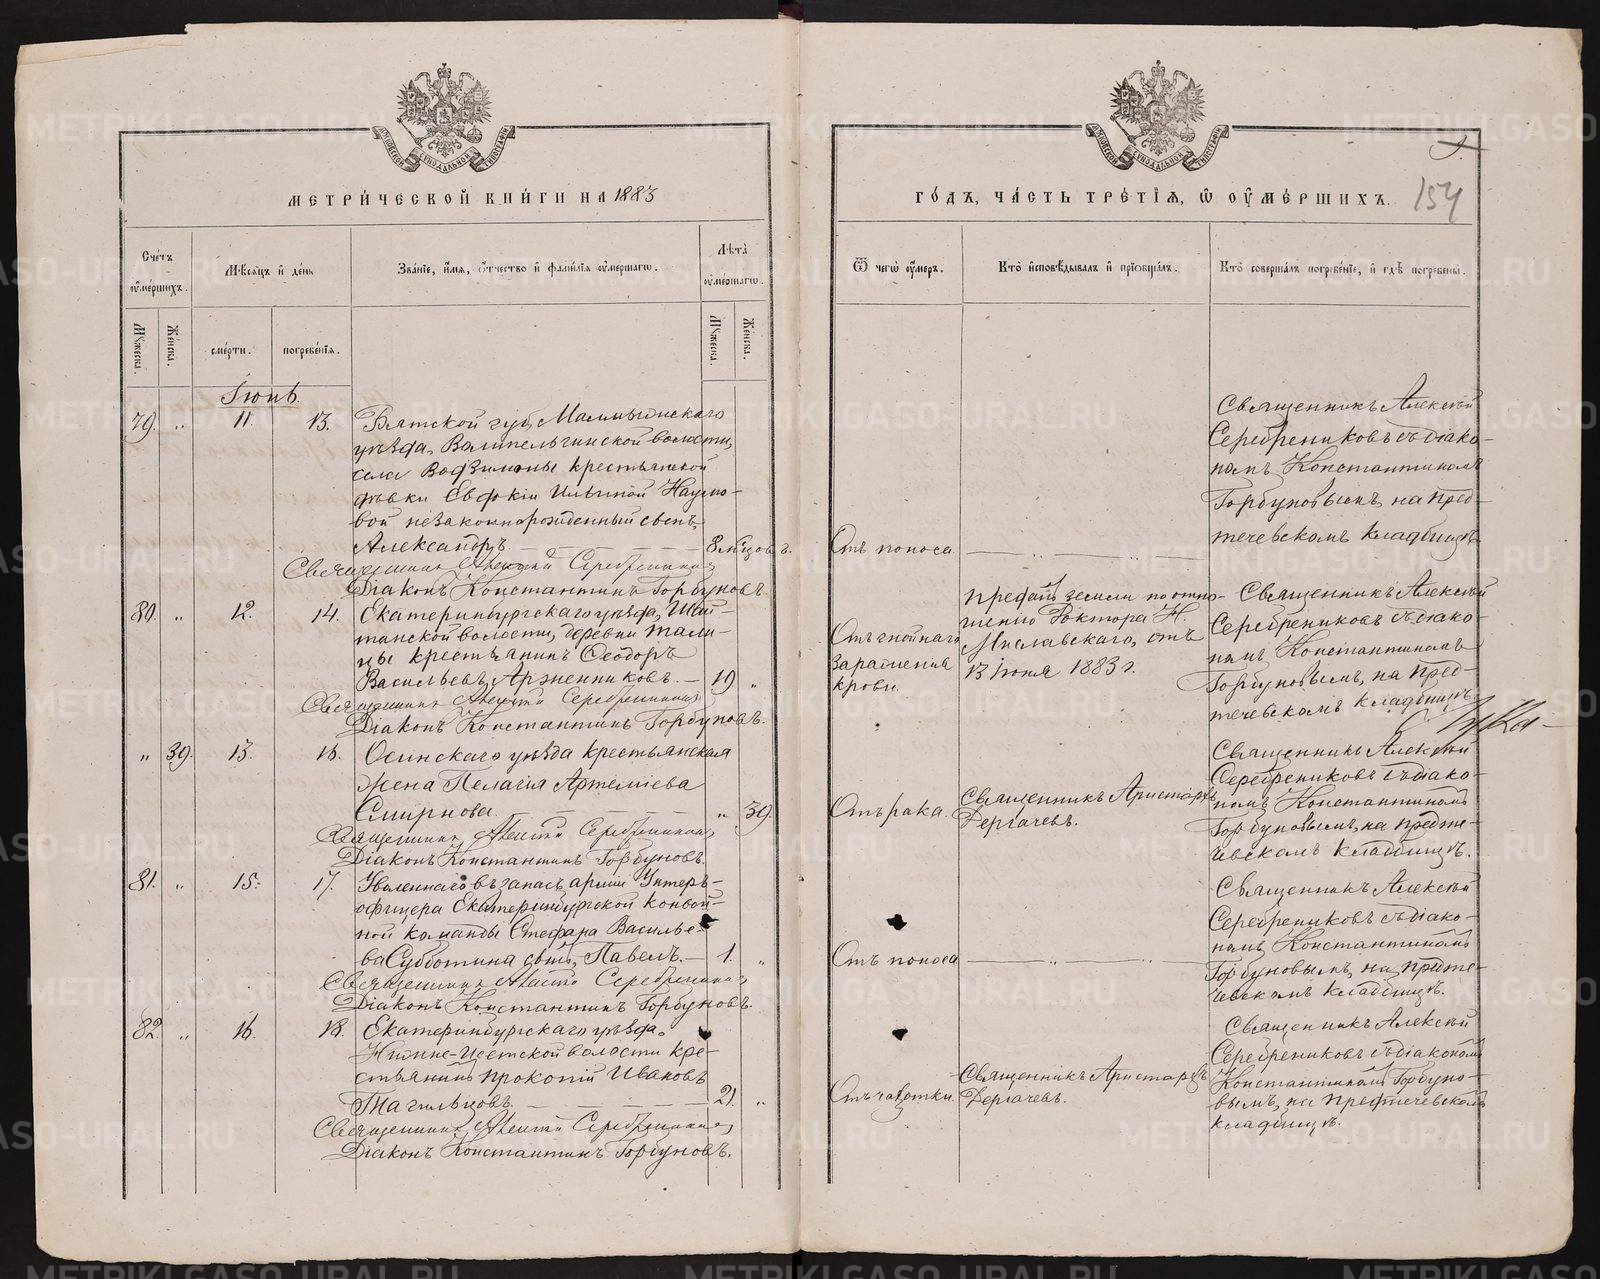 МЕТРИ́ЧЕСКОЙ КНИ́ГИ НА 1883
Сче́тъ оу҆ме́ршихъ.
Мѣ́сѧцъ и҆ де́нь
Зва́нїе, и҆́мѧ, ѻ҆́тчество и҆ фами́лїѧ оу҆ме́ршагѡ.
Лѣ̀та̀ оу҆ме́ршагѡ.
Мꙋ́жеска.
Же́нска.
сме́рти.
погребе́нїѧ.
Мꙋ́жеска.
Же́нска.
Іюнь.
79. „ 11. 13. Вятской губ., Малмыжскаго
уѣзда, Волипельгинской волости,
села Водзимонья крестьянской
дѣвки Евдокіи Ильиной Наумо-
вой незаконнорожденный сынъ
Александръ 8 мѣсцовъ.
Священникъ Алексій Серебрениковъ
Діаконъ Константинъ Горбуновъ
80. „ 12. 14. Екатеринбургскаго уѣзда, Шай-
танской волости, деревни Тали-
цы крестьянинъ Ѳеодоръ
Васильевъ 19 „
Священникъ Алексій Серебрениковъ
Діаконъ Константинъ Горбуновъ.
„ 39. 13. 16. Осинскаго уѣзда крестьянская
жена Пелагія Артеміева
Смирнова. „ 39.
Священникъ Алексій Серебрениковъ
Діаконъ Константинъ Горбуновъ.
81. „ 15. 17. Уволеннаго въ запасъ арміи Унтеръ-
офицера Екатеринбургской конвой-
ной команды Стефана Василье-
ва Субботина сынъ, Павелъ. 1. „
Священникъ Алексій Серебрениковъ
Діаконъ Константинъ Горбуновъ.
82. „ 16. 18. Екатеринбургскаго уѣзда,
Нижне-Исетской волости кре-
стьянинъ Прокопій Ивановъ
Тагильцовъ. 21. „
Священникъ Алексій Серебрениковъ
Діаконъ Константинъ Горбуновъ.
ГО́ДЪ, ЧА́СТЬ ТРЕ́ТЇѦ, Ѡ҆ ОУ҆МЕ́РШИХЪ.
154
Ѿ чегѡ̀ оу҆́меръ.
Кто̀ и҆сповѣ́дывалъ и҆ прїѡбща́лъ.
Кто̀ соверша́лъ погребе́нїе, и҆ гдѣ̀ погребены̀.
Отъ поноса
Священникъ Алексій
Серебрениковъ съ діако-
номъ Константиномъ
Горбуновымъ, на Пред-
течевскомъ кладбищѣ
Отъ гнойнаго
зараженія
крови.
Преданъ земли по отно-
шенію Доктора Н.
Миславскаго, отъ
13 Іюня 1883 г.
Священникъ Алексій
Серебрениковъ съ діако-
номъ Константиномъ
Горбуновымъ, на Пред-
течевскомъ кладбищѣ.
Отъ рака.
Священникъ Аристархъ
Дергачевъ.
Священникъ Алексій
Серебрениковъ съ діако-
номъ Константиномъ
Горбуновымъ, на Предте-
чевскомъ кладбищѣ.
Отъ поноса
Священникъ Алексій
Серебрениковъ съ діако-
номъ Константиномъ
Горбуновымъ, на Предте-
чевскомъ кладбищѣ.
Отъ чахотки.
Священникъ Аристархъ
Дергачевъ.
Священникъ Алексій
Серебрениковъ съ діакономъ
Константиномъ Горбуно-
вымъ, на Предтечевскомъ
кладбищѣ.
METRIKI.GASO-URAL.RU